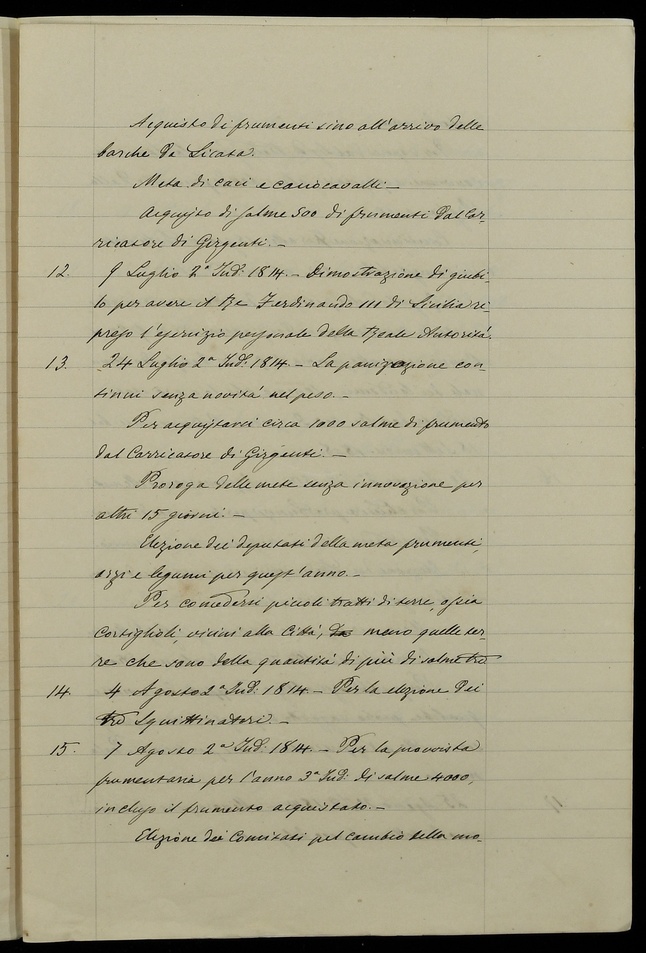 Acquisto di frumenti sino all'arrivo delle
barche da Licata.
Meta di caci e caciocavalli. —
Acquisto di salme 500 di frumenti dal Car-
ricatore di Girgenti. —
12. 9 Luglio 2ª Ind: 1814. — Dimostrazione di giubi-
lo per avere il Re Ferdinando III di Sicilia ri-
preso l'esercizio personale della Reale Autorità.
13. 24 Luglio 2ª Ind: 1814. — La panizzazione con-
tinui senza novità nel peso. —
Per acquistarsi circa 1000 salme di frumento
dal Carricatore di Girgenti. —
Proroga delle mete senza innovazione per
altri 15 giorni. —
Elezione dei deputati della meta frumenti,
orzi e legumi per quest'anno. —
Per concedersi piccoli tratti di terre, ossia
cortiglioli, vicini alla Città, meno quelle ter-
re che sono della quantità di più di salme tre
14. 4 Agosto 2ª Ind: 1814. — Per la elezione dei
tre Squittinatori. —
15. 7 Agosto 2ª Ind: 1814. — Per la provvista
frumentaria per l'anno 3ª Ind: di salme 4000,
incluso il frumento acquistato. —
Elezione dei Comitati pel cambio della mo-